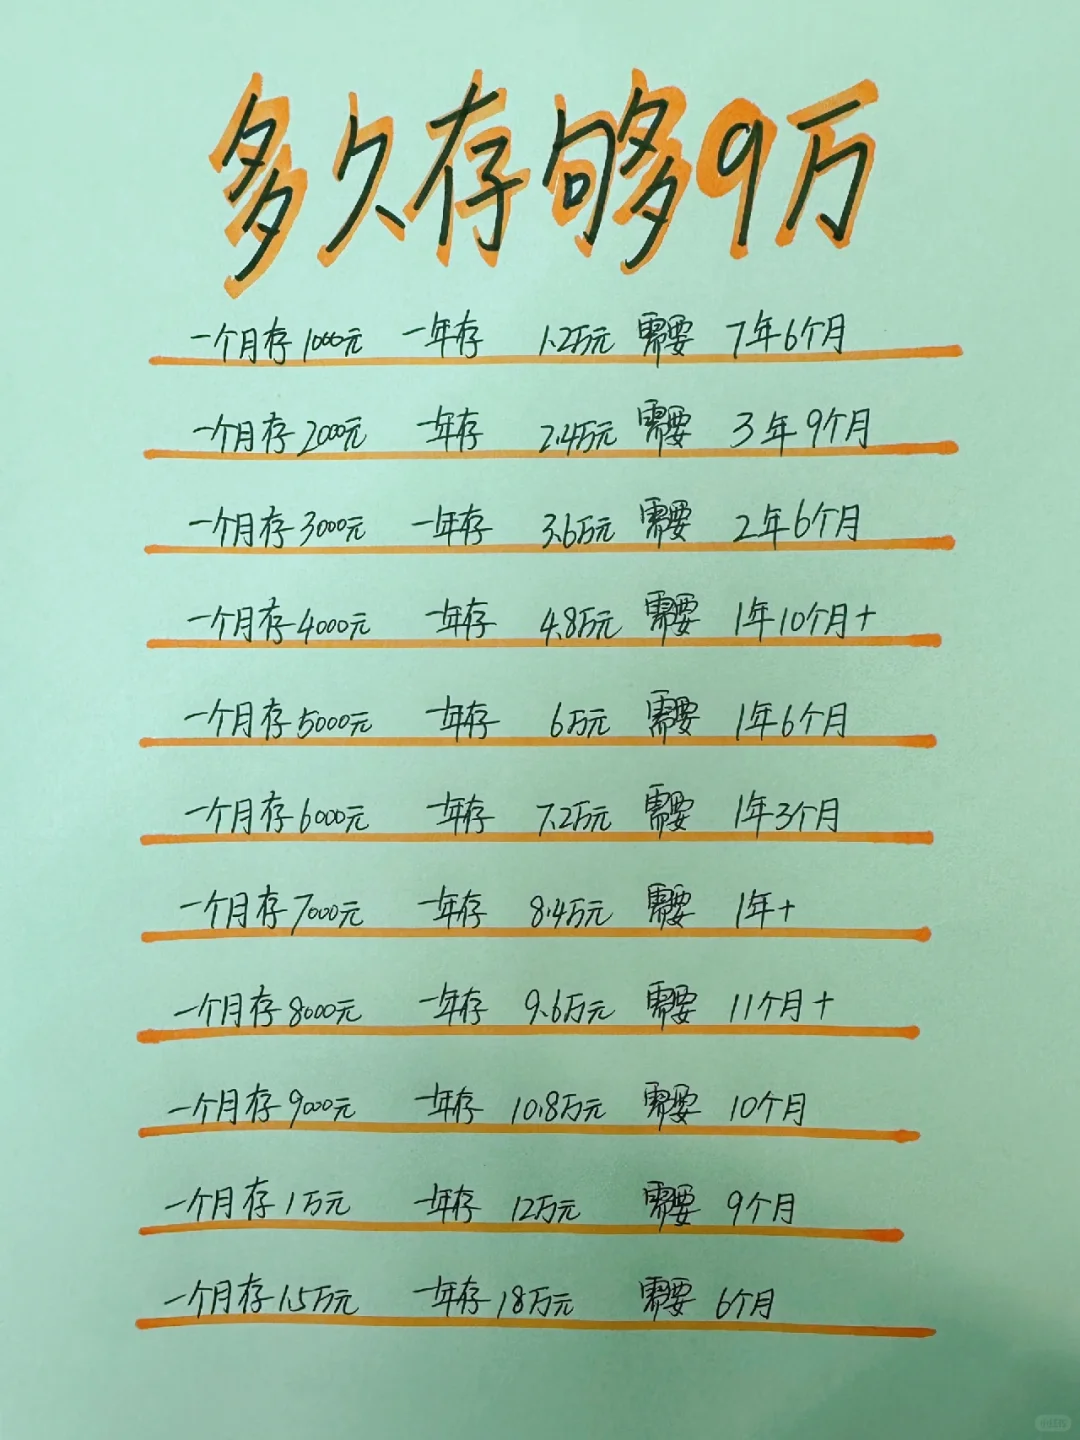 多久存够9万
一个月存1000元 一年存 1.2万元 需要 7年6个月
一个月存2000元 一年存 2.4万元 需要 3年9个月
一个月存3000元 一年存 3.6万元 需要 2年6个月
一个月存4000元 一年存 4.8万元 需要 1年10个月+
一个月存5000元 一年存 6万元 需要 1年6个月
一个月存6000元 一年存 7.2万元 需要 1年3个月
一个月存7000元 一年存 8.4万元 需要 1年+
一个月存8000元 一年存 9.6万元 需要 11个月+
一个月存9000元 一年存 10.8万元 需要 10个月
一个月存1万元 一年存 12万元 需要 9个月
一个月存1.5万元 一年存 18万元 需要 6个月
小红书